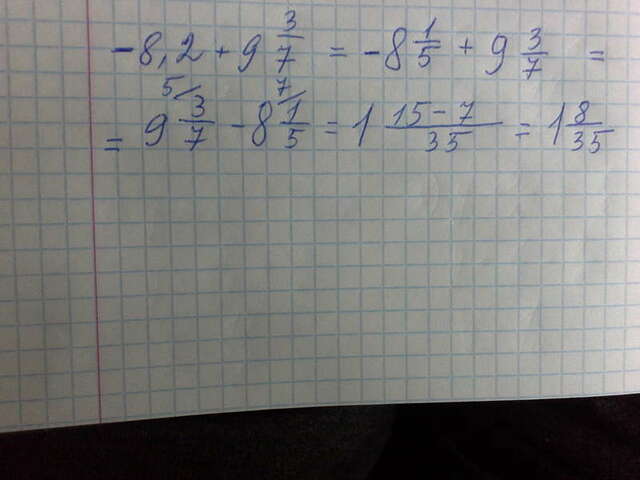 -8,2 + 9 3/7 = -8 1/5 + 9 3/7 =
= 9 3/7 ⁵⁄ - 8 1/5 ⁷⁄ = 1 (15-7)/35 = 1 8/35